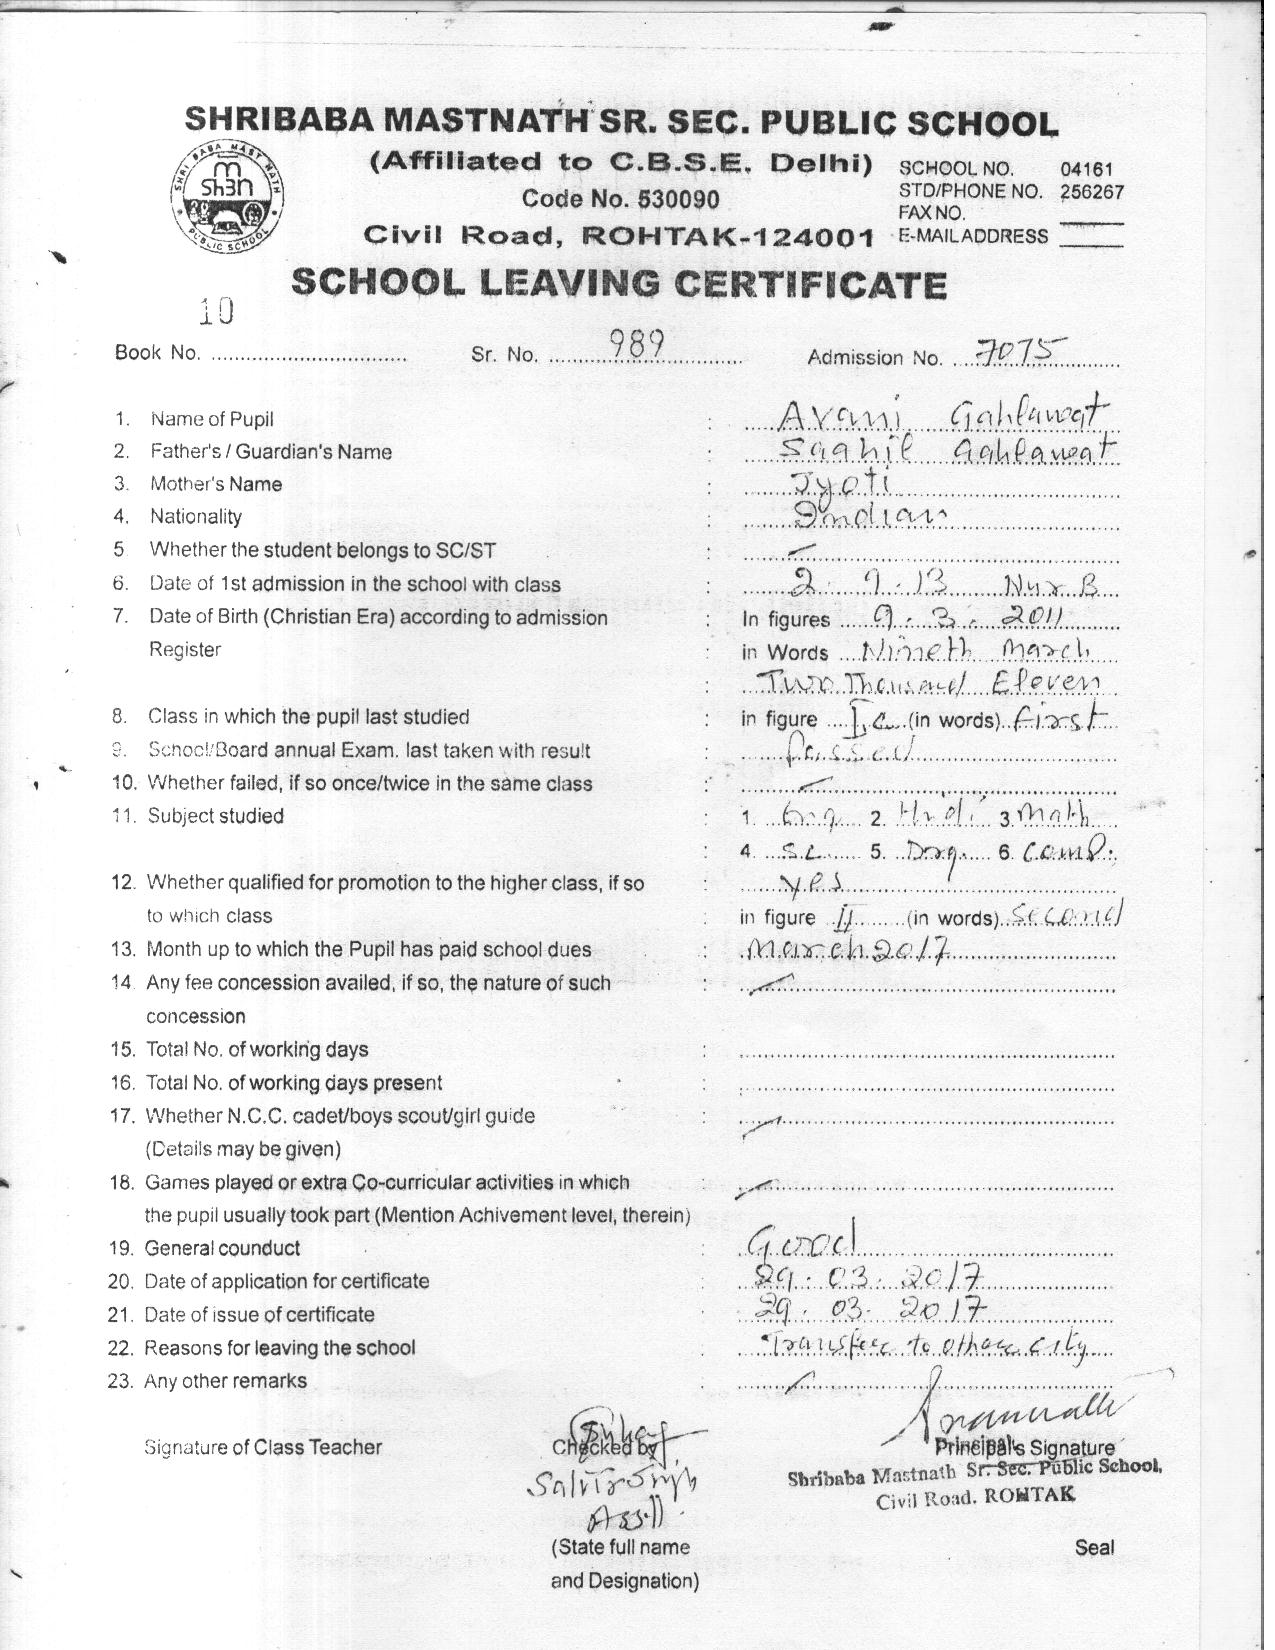 SHRIBABA MASTNATH SR. SEC. PUBLIC SCHOOL
(Affiliated to C.B.S.E. Delhi)
Code No. 530090
Civil Road, ROHTAK-124001
SCHOOL NO. 04161
STD/PHONE NO. 256267
FAX NO.
E-MAIL ADDRESS
SHRI BABA MAST NATH
PUBLIC SCHOOL
SCHOOL LEAVING CERTIFICATE
10
Book No. Sr. No. 989 Admission No. 7075
1. Name of Pupil : Avani Gahlawat
2. Father's / Guardian's Name : Saahil Gahlawat
3. Mother's Name : Jyoti
4. Nationality : Indian
5 Whether the student belongs to SC/ST :
6. Date of 1st admission in the school with class : 2.9.13 Nur B
7. Date of Birth (Christian Era) according to admission : In figures 9.3.2011
Register : in Words Nineth March
: Two Thousand Eleven
8. Class in which the pupil last studied : in figure I (in words) First
9. School/Board annual Exam. last taken with result : Passed
10. Whether failed, if so once/twice in the same class :
11. Subject studied : 1. Eng 2. Hndi 3. Math
: 4. Sc 5. Drg. 6. Comp.
12. Whether qualified for promotion to the higher class, if so : yes
to which class : in figure II (in words) Second
13. Month up to which the Pupil has paid school dues : March 2017
14 Any fee concession availed, if so, the nature of such :
concession
15. Total No. of working days :
16. Total No. of working days present :
17. Whether N.C.C. cadet/boys scout/girl guide :
(Details may be given)
18. Games played or extra Co-curricular activities in which
the pupil usually took part (Mention Achivement level, therein)
19. General counduct : Good
20. Date of application for certificate : 29.03.2017
21. Date of issue of certificate : 29.03.2017
22. Reasons for leaving the school : Transfer to other city
23. Any other remarks :
Signature of Class Teacher Checked by Principal's Signature
Shribaba Mastnath Sr. Sec. Public School,
Civil Road. ROHTAK
(State full name Seal
and Designation)